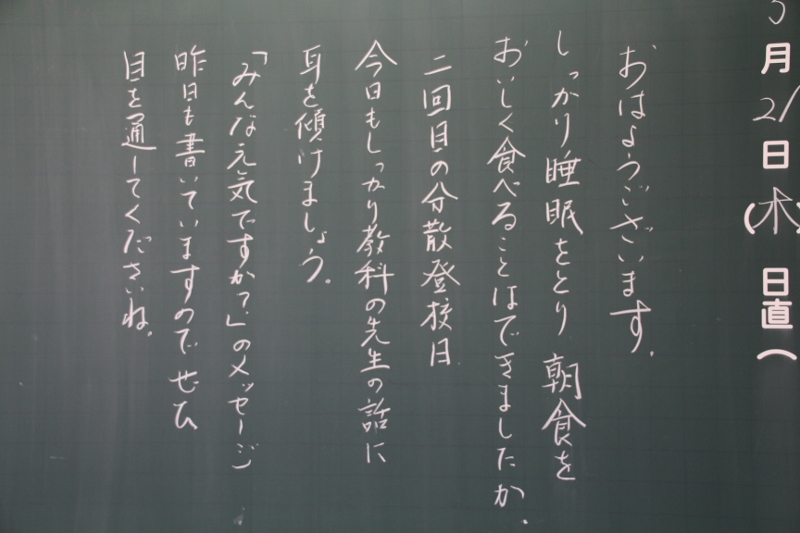 月21日(木) 日直(
おはようございます。
しっかり睡眠をとり 朝食を
おいしく食べることはできましたか。
二回目の分散登校日
今日もしっかり教科の先生の話に
耳を傾けましょう。
「みんな元気ですか?」のメッセージ
昨日も書いていますので ぜひ
目を通してくださいね。